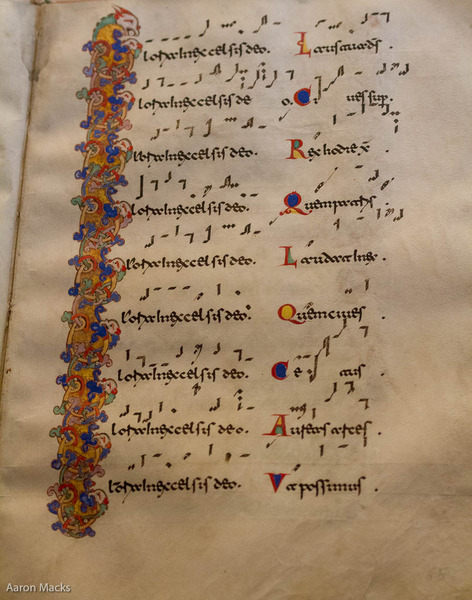 loria In excelsis deo. Laus tua ds̄.
loria In excelsis de o. Ci ues sup.
loria In excelsis deo. Rex hodie x̄.
loria In excelsis deo. Quem patris
loria In excelsis deo. Laudat In
loria In excelsis deo. Quem ciues
loria In excelsis deo.
loria In excelsis deo. Aureas arces
loria In excelsis deo. Vt possimus
Aaron Macks